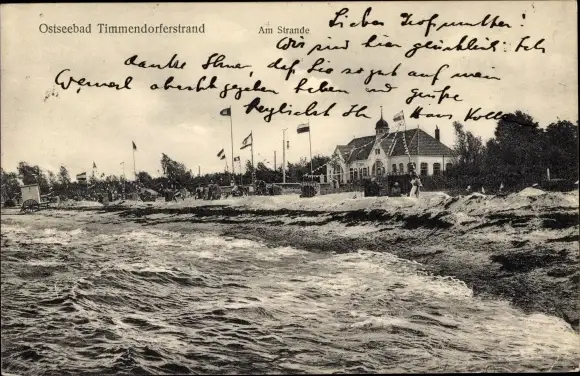 Ostseebad Timmendorferstrand
Am Strande
Lieber Hofmutter!
Wir sind hier glücklich. Ich
danke Ihnen, daß Sie so gut auf mein
acht gegeben haben und grüße
herzlichst Ihr Hans Koll